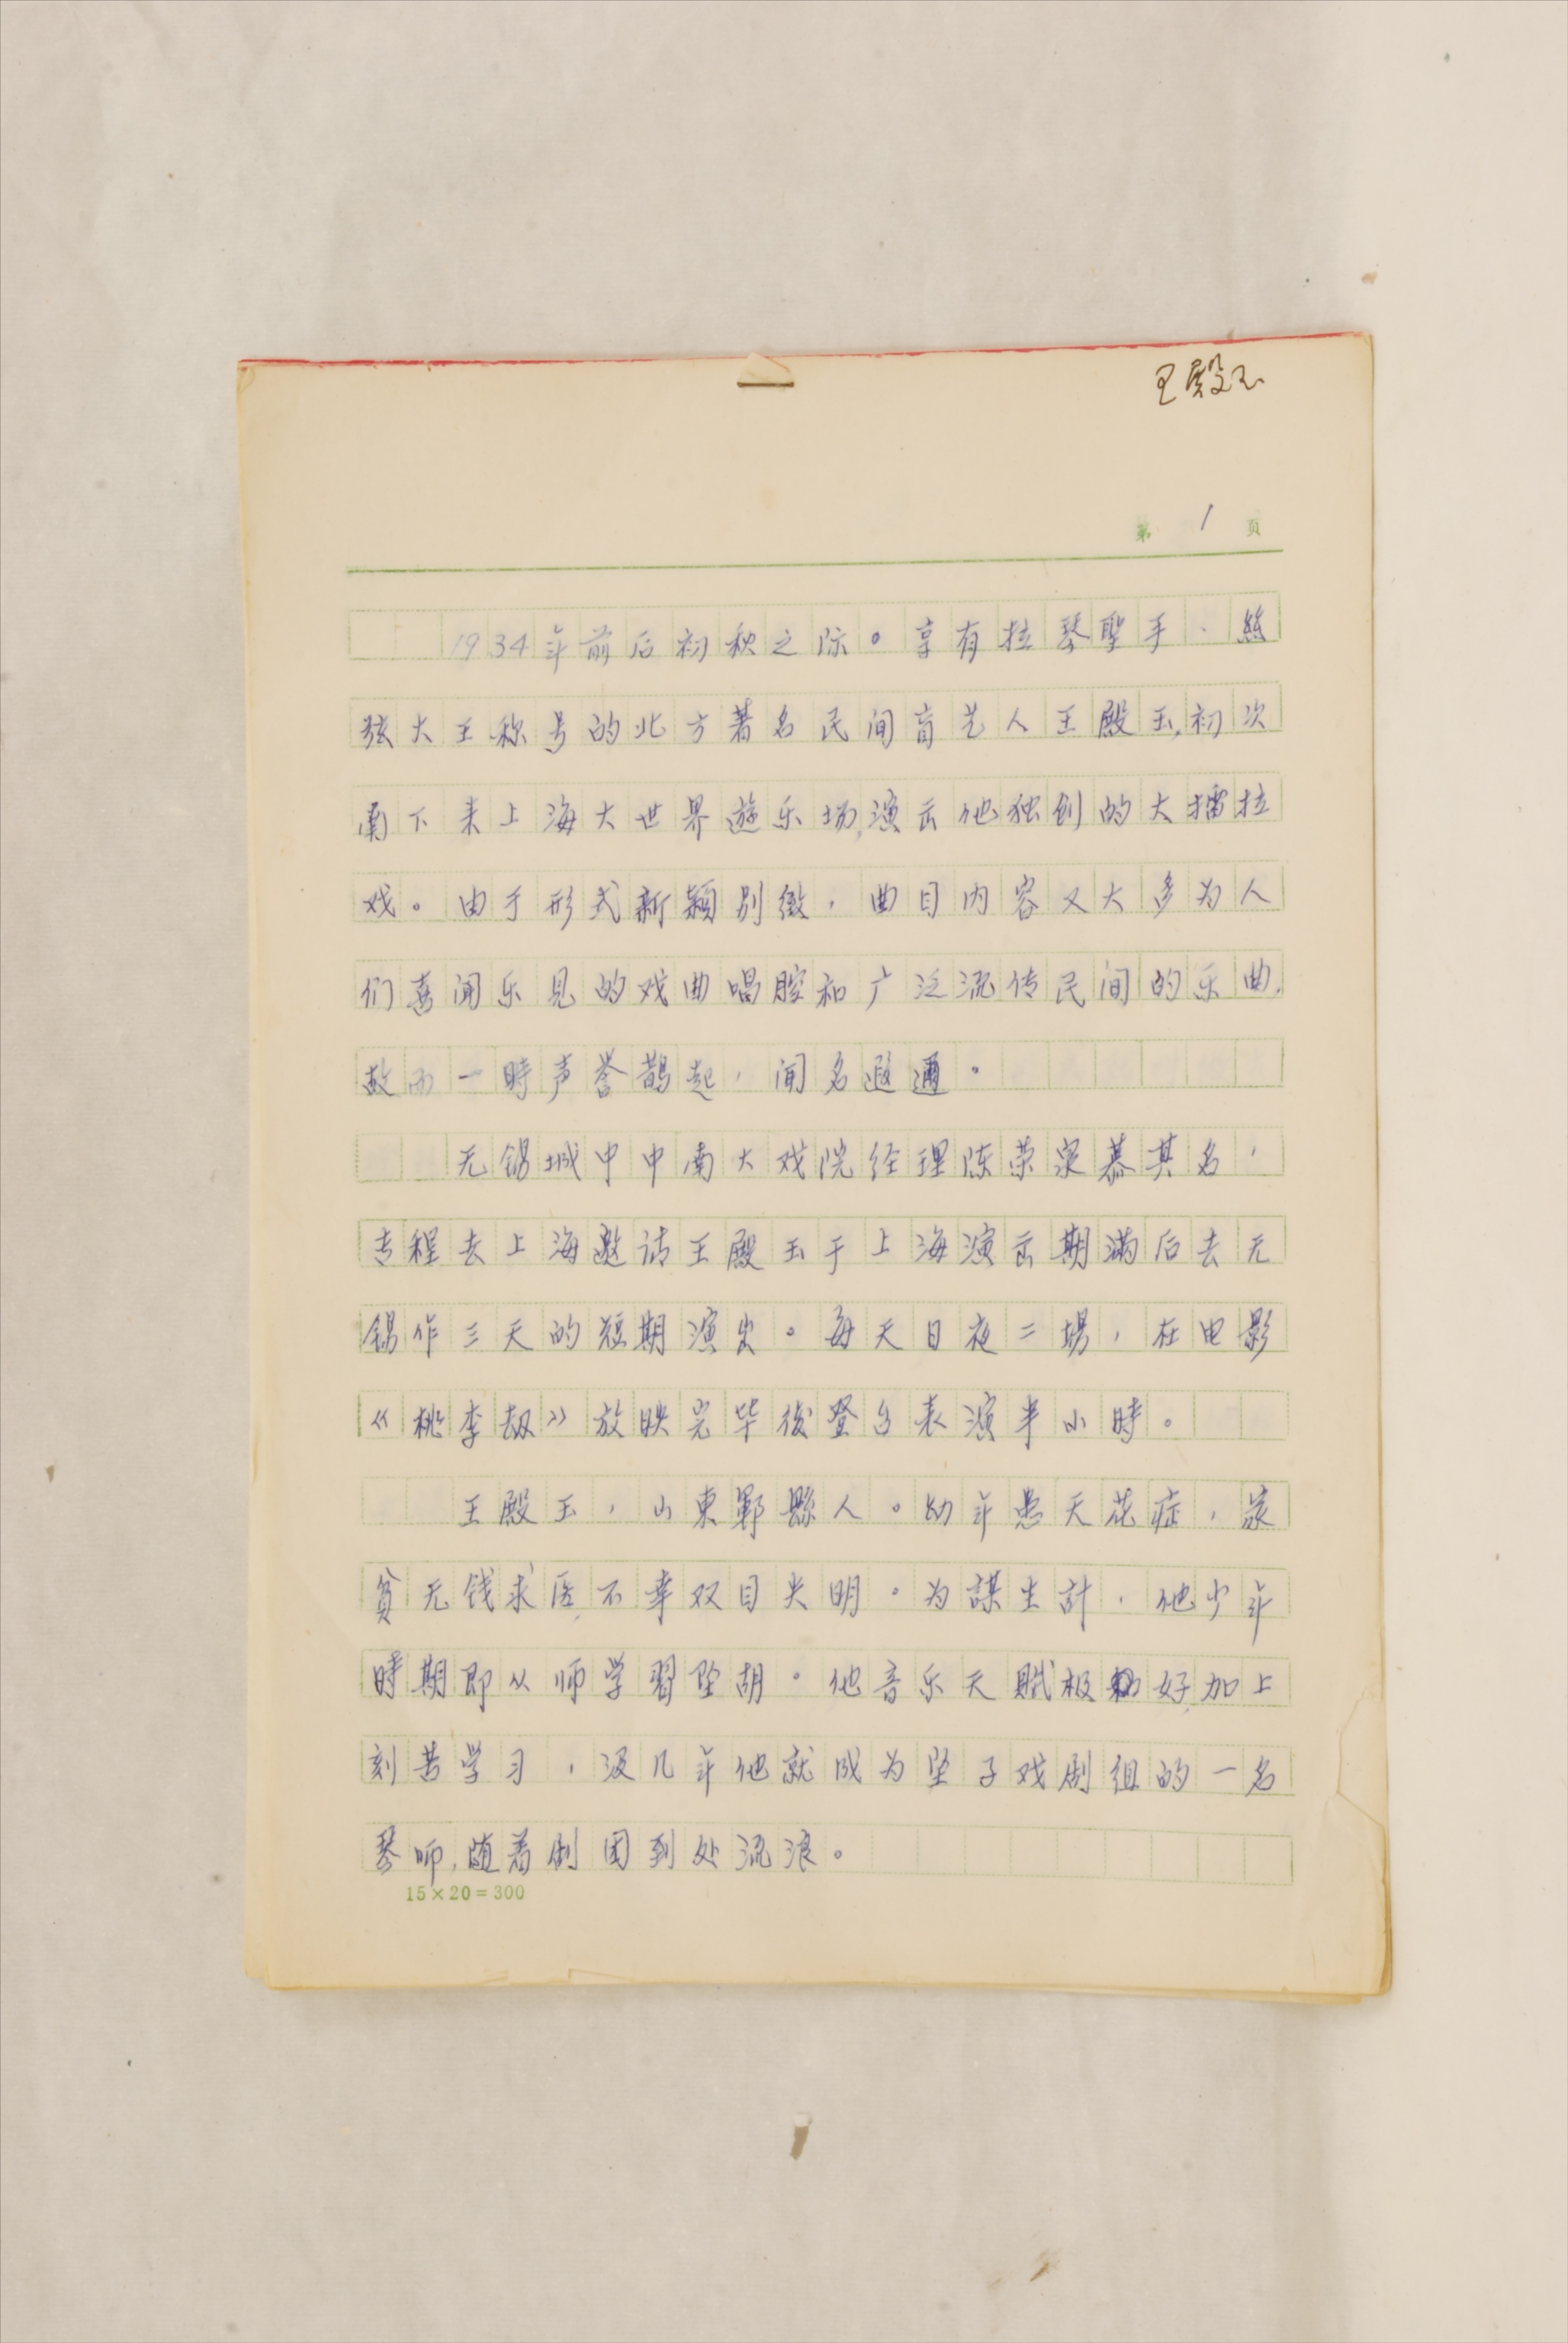 王殿玉
第 1 页
1934年前后初秋之际。享有拉琴聖手、絲
弦大王称号的北方著名民间盲艺人王殿玉,初次
南下来上海大世界遊乐场,演出他独创的大擂拉
戏。由于形式新颖别緻,曲目内容又大多为人
们喜闻乐见的戏曲唱腔和广泛流传民间的乐曲,
故而一時声誉鹊起,闻名遐邇。
无锡城中中南大戏院经理陈荣泉慕其名,
专程去上海邀请王殿玉于上海演出期满后去无
锡作三天的短期演出。每天日夜二場,在电影
《桃李劫》放映完毕後登台表演半小時。
王殿玉,山東鄆縣人。幼年患天花症,家
贫无钱求医,不幸双目失明。为謀生計,他少年
時期即从师学習坠胡。他音乐天賦极好,加上
刻苦学习,没几年他就成为坠子戏剧组的一名
琴师,随着剧团到处流浪。
15×20=300